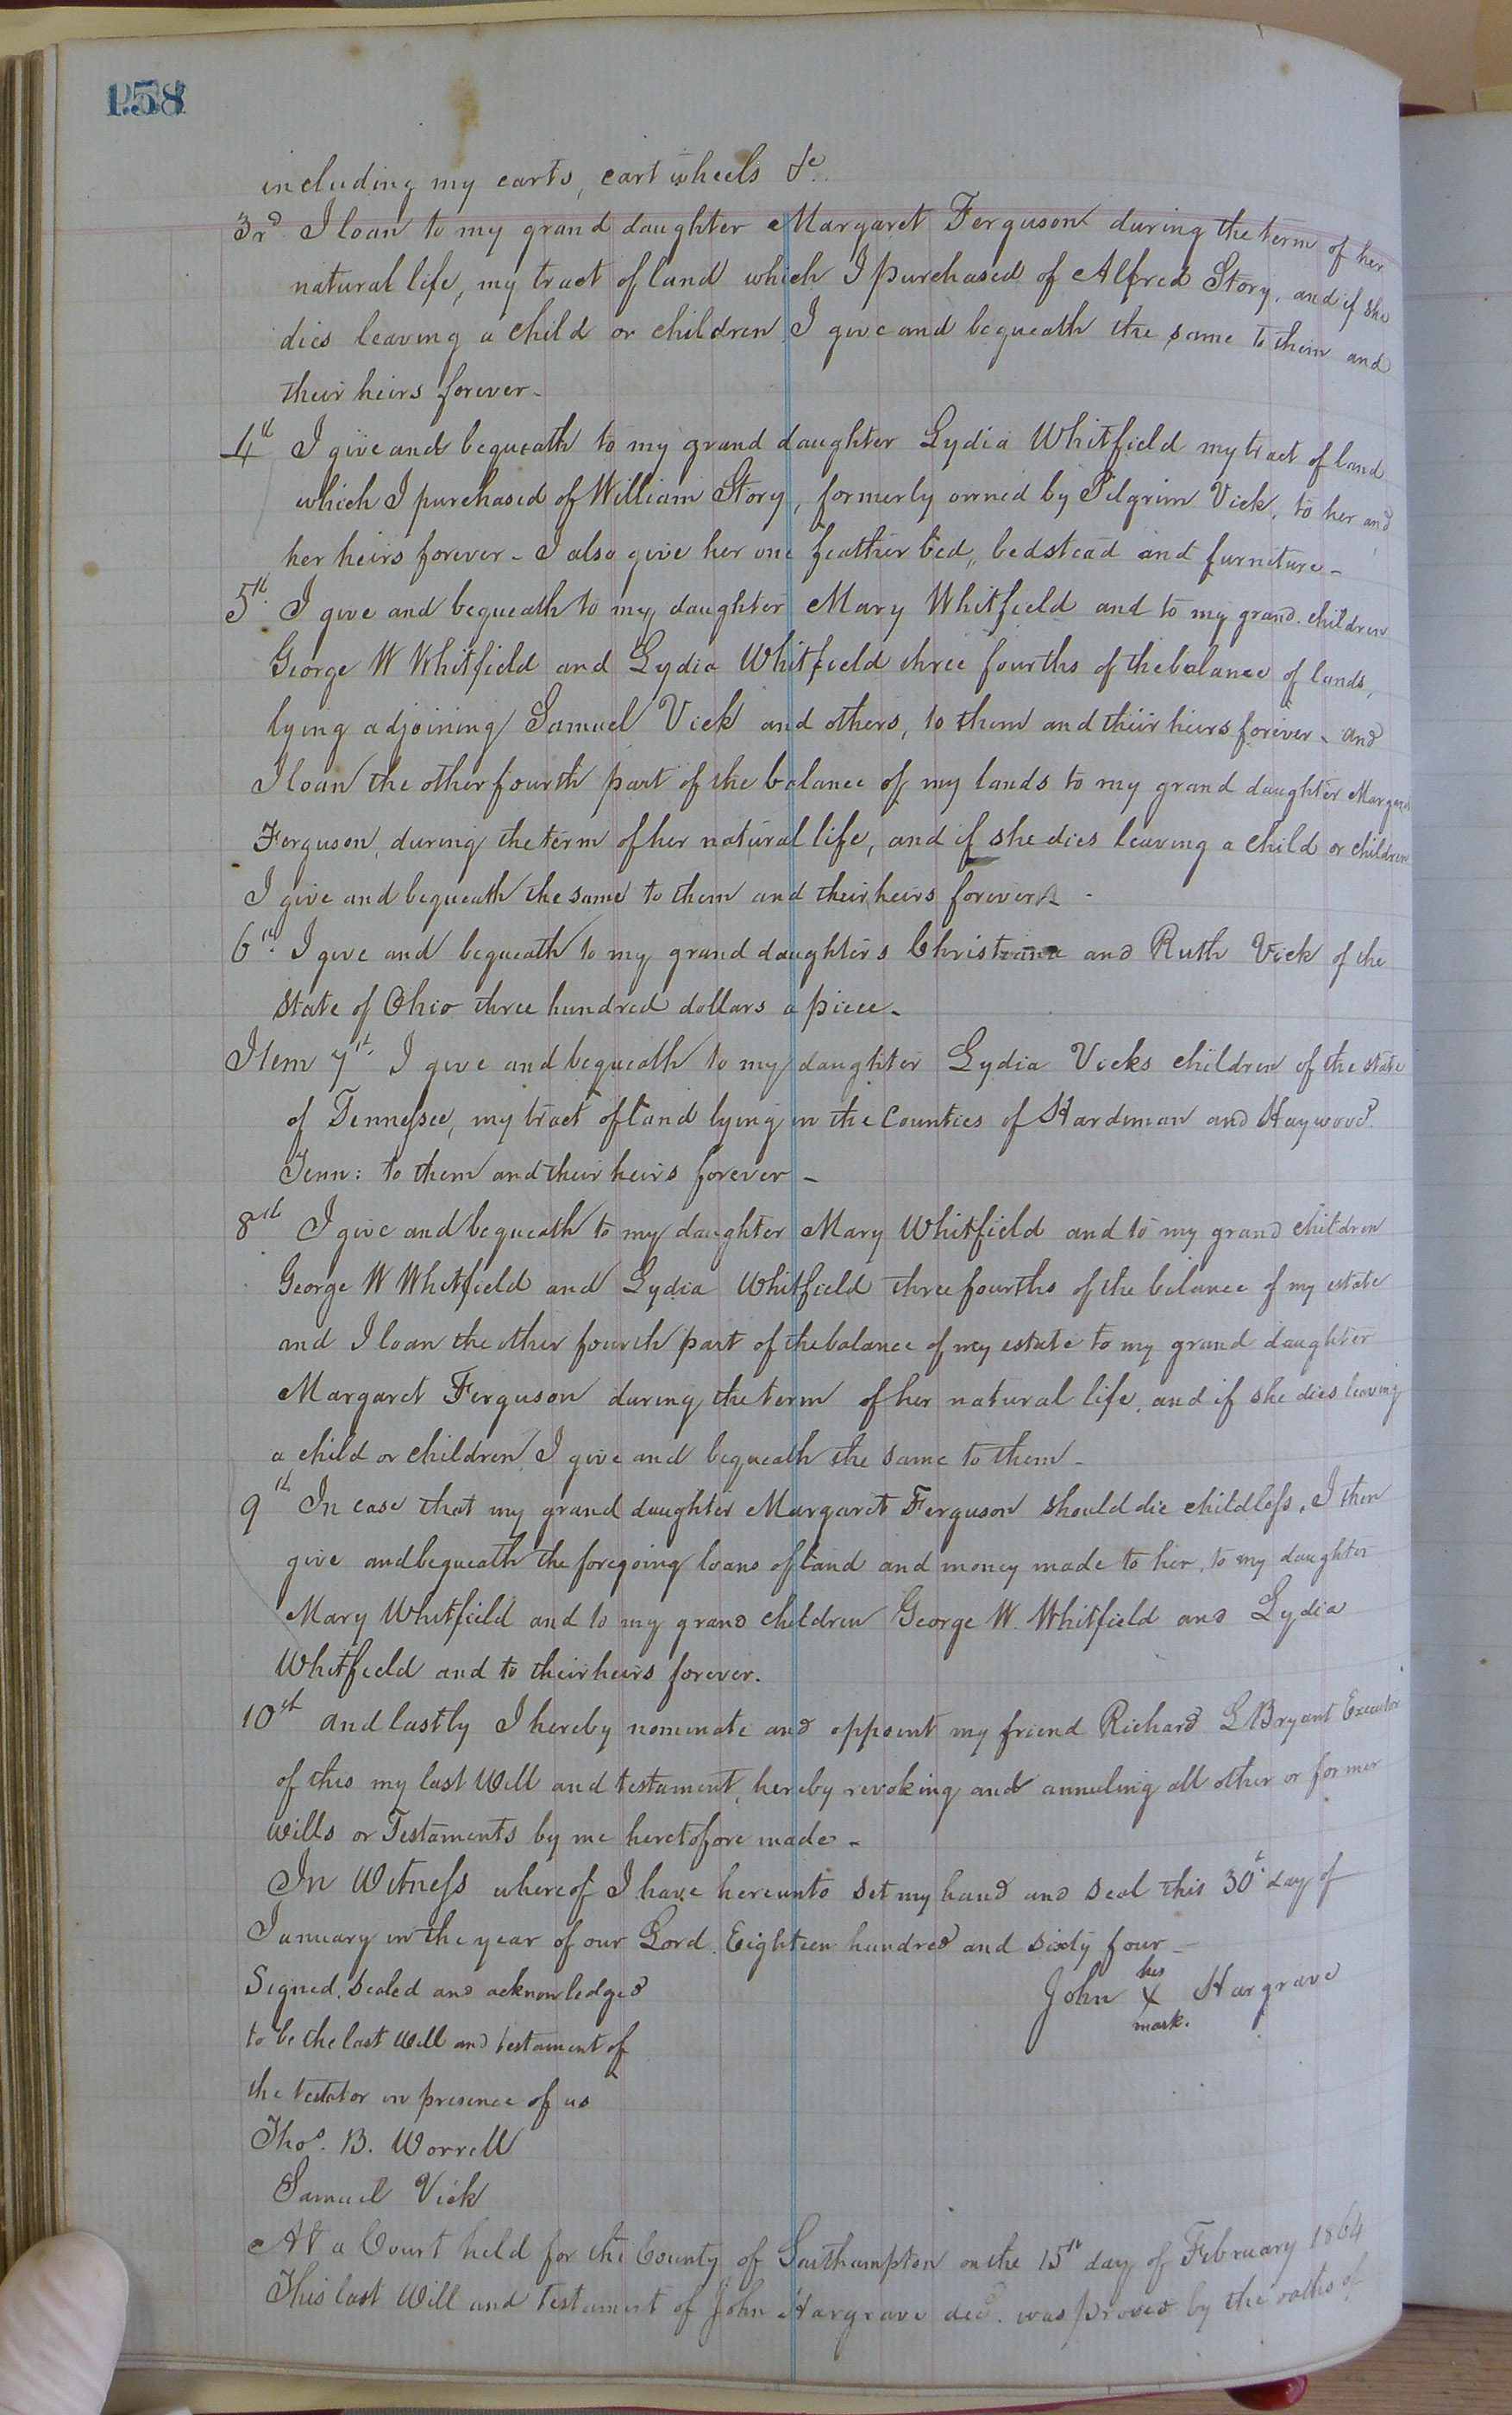 158
including my carts, cart wheels &c.
3rd I loan to my grand daughter Margaret Ferguson during the term of her
natural life, my tract of land which I purchased of Alfred Story, and if she
dies leaving a child or children I give and bequeath the same to them and
their heirs forever -
4th I give and bequeath to my grand daughter Lydia Whitfield my tract of land
which I purchased of William Story, formerly owned by Pilgrim Vick, to her and
her heirs forever - I also give her one feather bed, bedstead and furniture -
5th I give and bequeath to my daughter Mary Whitfield and to my grand children
George W Whitfield and Lydia Whitfield three fourths of the balance of lands,
lying adjoining Samuel Vick and others, to them and their heirs forever - and
I loan the other fourth part of the balance of my lands to my grand daughter Margaret
Ferguson, during the term of her natural life, and if she dies leaving a child or children
I give and bequeath the same to them and their heirs forever -
6th I give and bequeath to my grand daughters and Ruth Vick of the
State of Ohio three hundred dollars a piece -
Item 7th I give and bequeath to my daughter Lydia Vicks children of the state
of Tennessee, my tract of land lying in the Counties of Hardeman and Haywood
Tenn: to them and their heirs forever -
8th I give and bequeath to my daughter Mary Whitfield and to my grand children
George W Whitfield and Lydia Whitfield three fourths of the balance of my estate
and I loan the other fourth part of the balance of my estate to my grand daughter
Margaret Ferguson during the term of her natural life, and if she dies leaving
a child or children I give and bequeath the same to them -
9th In case that my grand daughter Margaret Ferguson should die childless, I then
give and bequeath the foregoing loans of land and money made to her, to my daughter
Mary Whitfield and to my grand children George W. Whitfield and Lydia
Whitfield and to their heirs forever.
10th and lastly I hereby nominate and appoint my friend Richard L Bryant Executor
of this my last Will and testament, hereby revoking and annuling all other or former
wills or Testaments by me heretofore made -
In Witness whereof I have hereunto set my hand and seal this 30th day of
January in the year of our Lord. Eighteen hundred and sixty four -
Signed, sealed and acknowledged
his
John X Hargrave
mark.
to be the last Will and testament of
the testator in presence of us
Thos. B. Worrell
Samuel Vick
At a Court held for the County of Southampton on the 15th day of February 1864
This last Will and testament of John Hargrave decd. was proved by the oaths of